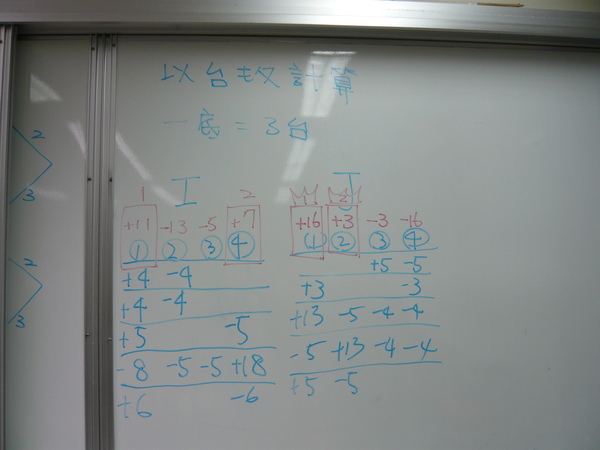 以台数計算
一底 = 3台
1 工 2
+11 -13 -5 +7
① ② ③ ④
+4 -4
+4 -4
+5 -5
-8 -5 -5 +18
+6 -6
+16 +3 -3 -16
① ② ③ ④
+5 -5
+3 -3
+13 -5 -4 -4
-5 +13 -4 -4
+5 -5
2
3
2
3